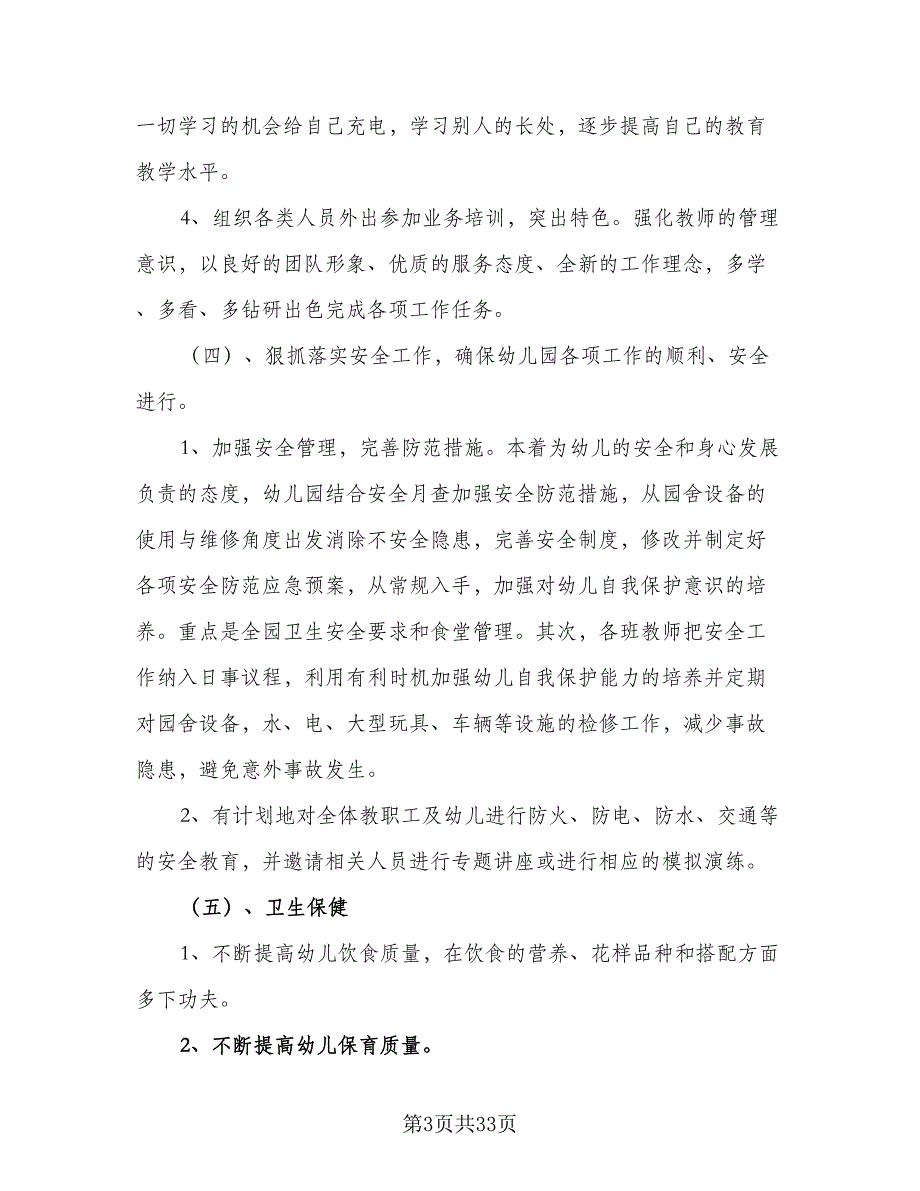 一切学习的机会给自己充电，学习别人的长处，逐步提高自己的教育
教学水平。
4、组织各类人员外出参加业务培训，突出特色。强化教师的管理
意识，以良好的团队形象、优质的服务态度、全新的工作理念，多学
、多看、多钻研出色完成各项工作任务。
（四）、狠抓落实安全工作，确保幼儿园各项工作的顺利、安全
进行。
1、加强安全管理，完善防范措施。本着为幼儿的安全和身心发展
负责的态度，幼儿园结合安全月查加强安全防范措施，从园舍设备的
使用与维修角度出发消除不安全隐患，完善安全制度，修改并制定好
各项安全防范应急预案，从常规入手，加强对幼儿自我保护意识的培
养。重点是全园卫生安全要求和食堂管理。其次，各班教师把安全工
作纳入日事议程，利用有利时机加强幼儿自我保护能力的培养并定期
对园舍设备，水、电、大型玩具、车辆等设施的检修工作，减少事故
隐患，避免意外事故发生。
2、有计划地对全体教职工及幼儿进行防火、防电、防水、交通等
的安全教育，并邀请相关人员进行专题讲座或进行相应的模拟演练。
（五）、卫生保健
1、不断提高幼儿饮食质量，在饮食的营养、花样品种和搭配方面
多下功夫。
2、不断提高幼儿保育质量。
第3页共33页